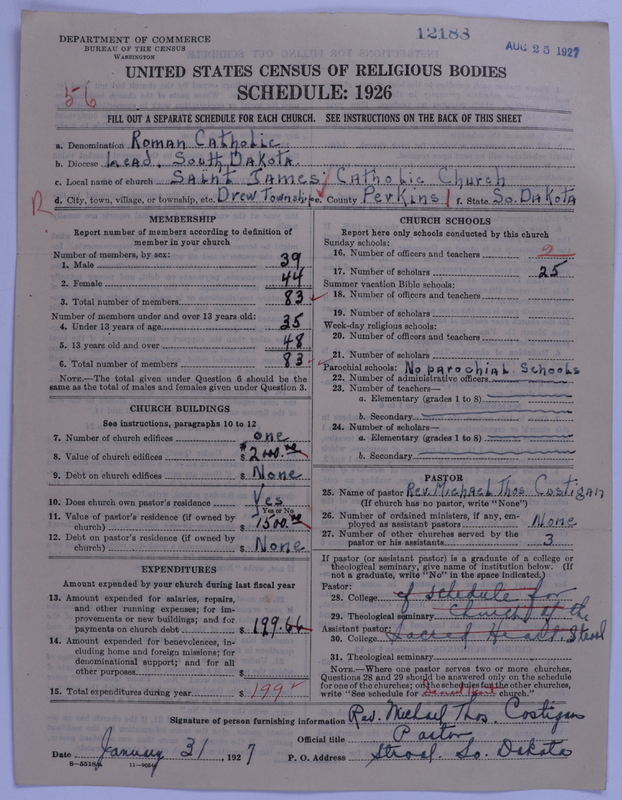 12188
AUG 25 1927
DEPARTMENT OF COMMERCE
BUREAU OF THE CENSUS
WASHINGTON
UNITED STATES CENSUS OF RELIGIOUS BODIES
SCHEDULE: 1926
56
FILL OUT A SEPARATE SCHEDULE FOR EACH CHURCH. SEE INSTRUCTIONS ON THE BACK OF THIS SHEET
a. Denomination Roman Catholic
b. Diocese Lead. South Dakota.
c. Local name of church Saint James Catholic Church
R d. City, town, village, or township, etc. Drew Township e. County Perkins f. State So. Dakota
MEMBERSHIP
Report number of members according to definition of
member in your church
Number of members, by sex:
1. Male 39
2. Female 44
3. Total number of members 83
Number of members under and over 13 years old:
4. Under 13 years of age 35
5. 13 years old and over 48
6. Total number of members 83
NOTE.—The total given under Question 6 should be the
same as the total of males and females given under Question 3.
CHURCH BUILDINGS
See instructions, paragraphs 10 to 12
7. Number of church edifices one
8. Value of church edifices $ 2100.00
9. Debt on church edifices $ None
10. Does church own pastor's residence Yes
Yes or No
11. Value of pastor's residence (if owned by
church) $ 1500.00
12. Debt on pastor's residence (if owned by
church) $ None
EXPENDITURES
Amount expended by your church during last fiscal year
13. Amount expended for salaries, repairs,
and other running expenses; for im-
provements or new buildings; and for
payments on church debt $ 199.66
14. Amount expended for benevolences, in-
cluding home and foreign missions; for
denominational support; and for all
other purposes $
15. Total expenditures during year $ 199
CHURCH SCHOOLS
Report here only schools conducted by this church
Sunday schools:
16. Number of officers and teachers 2
17. Number of scholars 25
Summer vacation Bible schools:
18. Number of officers and teachers
19. Number of scholars
Week-day religious schools:
20. Number of officers and teachers
21. Number of scholars
Parochial schools: No parochial schools
22. Number of administrative officers
23. Number of teachers—
a. Elementary (grades 1 to 8)
b. Secondary
24. Number of scholars—
a. Elementary (grades 1 to 8)
b. Secondary
PASTOR
25. Name of pastor Rev. Michael Thos Costigan
(If church has no pastor, write "None")
26. Number of ordained ministers, if any, em-
ployed as assistant pastors None
27. Number of other churches served by the
pastor or his assistants 3
If pastor (or assistant pastor) is a graduate of a college or
theological seminary, give name of institution below. (If
not a graduate, write "No" in the space indicated.)
Pastor:
28. College of Schedule for
29. Theological seminary Church of the
Assistant pastor:
30. College Sacred Heart
31. Theological seminary
NOTE.—Where one pastor serves two or more churches,
Questions 28 and 29 should be answered only on the schedule
for one of the churches; on the schedules for the other churches,
write "See schedule for church."
Signature of person furnishing information Rev. Michael Thos. Costigan
Official title Pastor
Date January 31, 1927 P. O. Address So. Dakota